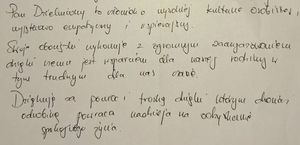 Pan Dzielnicowy to człowiek wysokiej kultury osobistej,
wyjątkowo empatyczny i wspierający.
Swoje obowiązki wykonuje z ogromnym zaangażowaniem
dzięki niemu jest wsparciem dla naszej rodziny w
tym trudnym dla nas czasie.
Dziękuję za pomoc i troskę dzięki którym
odrobinę powraca nadzieja na odzyskanie
spokojnego życia.